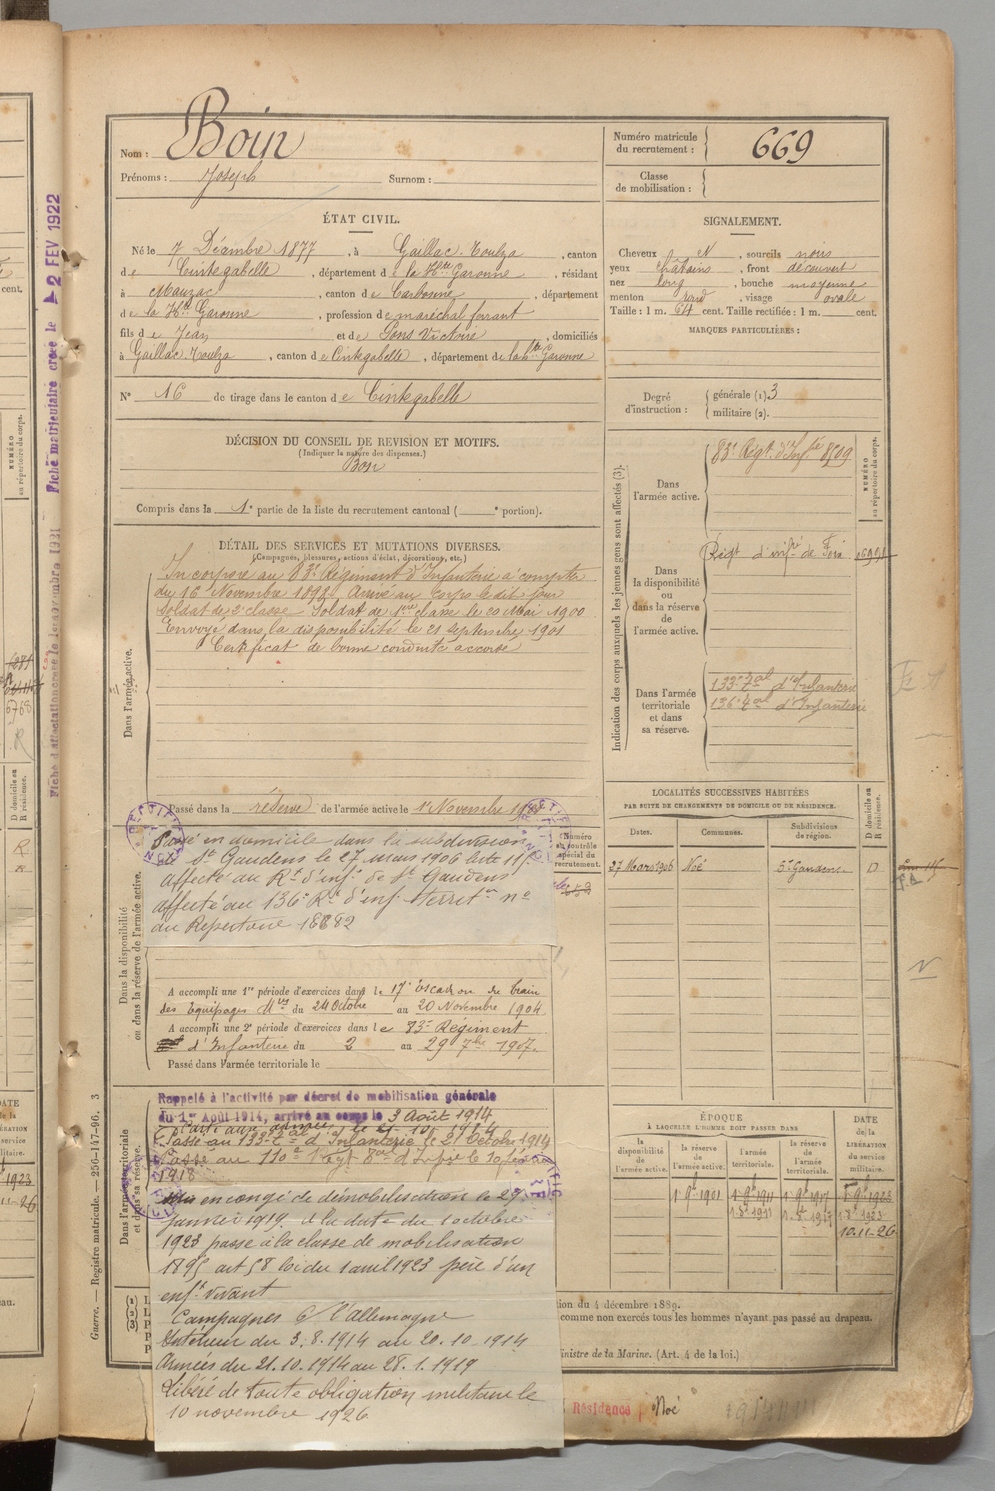 Nom : Boin
Prénoms : Joseph Surnom :
Numéro matricule
du recrutement : 669
Classe
de mobilisation :
ÉTAT CIVIL.
Né le 7 Décembre 1877, à Gaillac-Toulza, canton
de Cintegabelle, département de la Hte Garonne, résidant
à Mauzac, canton de Carbonne, département
de la Hte Garonne, profession de maréchal ferrant
fils de Jean et de Pons Victoire, domiciliés
à Gaillac-Toulza, canton de Cintegabelle, département de la hte Garonne
N° 16 de tirage dans le canton de Cintegabelle
SIGNALEMENT.
Cheveux N, sourcils noirs
yeux châtains, front découvert
nez long, bouche moyenne
menton rond, visage ovale
Taille : 1 m. 64 cent. Taille rectifiée : 1 m. cent.
MARQUES PARTICULIÈRES :
Degré
d'instruction :
générale (1) 3
militaire (2).
DÉCISION DU CONSEIL DE REVISION ET MOTIFS.
(Indiquer la nature des dispenses.)
Bon
Compris dans la 1e partie de la liste du recrutement cantonal ( e portion).
DÉTAIL DES SERVICES ET MUTATIONS DIVERSES.
(Campagnes, blessures, actions d'éclat, décorations, etc.)
Dans l'armée active.
Incorporé au 83e Régiment d'Infanterie à compter
du 16 Novembre 1898. Arrivé au corps le dit jour
soldat de 2e classe. Soldat de 1ère classe le 20 Mai 1900
Envoyé dans la disponibilité le 21 septembre 1901
Certificat de bonne conduite accordé
Passé dans la réserve de l'armée active le 1er Novembre 1901
Indication des corps auxquels les jeunes gens sont affectés (3).
NUMÉRO
au répertoire du corps.
Dans
l'armée active.
83e Régt d'Infie 8509
Dans
la disponibilité
ou
dans la réserve
de
l'armée active.
Régt d'infie de Foix
Dans l'armée
territoriale
et dans
sa réserve.
133e Tal d'Infanterie
136e Tal d'Infanterie
Dans la disponibilité
ou dans la réserve de l'armée active.
RECTIFICATION
Passé en domicile dans la subdivision
de St Gaudens le 27 mars 1906
affecté au Rt d'inf. de St Gaudens
affecté au 136e Rt d'inf. territ. no
du Répertoire 18882
Numéro
au contrôle
spécial du
recrutement.
A accompli une 1re période d'exercices dans le 17e Escadron du train
des Equipages du 24 Octobre au 20 Novembre 1904
A accompli une 2e période d'exercices dans le 83e Régiment
d'Infanterie du 2 au 29 7bre 1907.
Passé dans l'armée territoriale le
Dans l'armée territoriale
et dans sa réserve.
Rappelé à l'activité par décret de mobilisation générale
du 1er Août 1914, arrivé au corps le 3 Août 1914
Parti aux armées le 21 10 1914
Passé au 133e Tal d'Infanterie le 21 Octobre 1914
Passé au 110e Régt Tal d'Infie le
1918
Mis en congé de démobilisation le 29
Janvier 1919. A la date du 1 octobre
1923 passe à la classe de mobilisation
1895 art 58 loi du 1 avril 1923 père d'un
enft vivant
Campagnes C/ l'allemagne
Intérieur du 3.8.1914 au 20.10.1914
Armées du 21.10.1914 au 28.1.1919
Libéré de toute obligation militaire le
10 novembre 1926
LOCALITÉS SUCCESSIVES HABITÉES
PAR SUITE DE CHANGEMENTS DE DOMICILE OU DE RÉSIDENCE.
Dates. Communes. Subdivisions
de région.
D domicile ou
R résidence.
27 Mars 1906 Noé St Gaudens D
ÉPOQUE
À LAQUELLE L'HOMME DOIT PASSER DANS
la
disponibilité
de
l'armée active.
la
réserve de
l'armée active.
l'armée
territoriale.
la réserve
de
l'armée
territoriale.
DATE
de la
LIBÉRATION
du service
militaire.
1er 9bre 1901 1er 9bre 1911 1er 9bre 1917 1er 9bre 1923
10.11-26
tion du 4 décembre 1889.
comme non exercés tous les hommes n'ayant pas passé au drapeau.
ministre de la Marine. (Art. 4 de la loi.)
Résidence, Noé
Guerre. — Registre matricule. — 256-147-96. 3
Fiche matriculaire créée le 2 FEV 1922